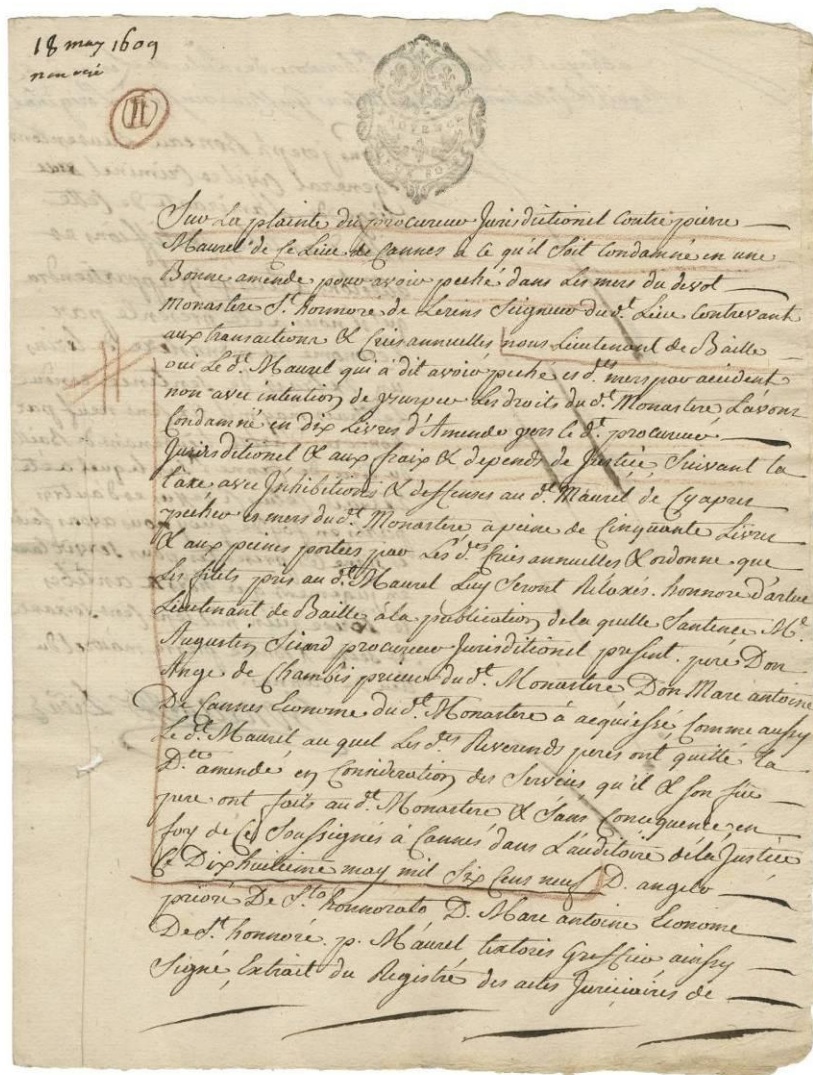 18 may 1609
non visé
11
Sur La plainte du procureur Jurisditionel Contre pierre
Maurel de Ce Lieu de Cannes à ce qu'il soit Condamné en une
Bonne amende pour avoir peché dans Les mers du devot
Monastere St. honnoré de Lerins Seigneur du dt. Lieu Contrevant
aux transactions & Cries annuelles nous Lieutenant de Baille
oui Le dt. Maurel qui à dit avoir peché es dtes. mers par accident
non avec intention de usurper Les droits du dt. Monastere L'avons
Condamné en dix Livres d'Amende vers le dt. procureur
Jurisditionel & aux fraix & depends de Justice suivant la
taxe avec Inhibitions & deffenses au dt. Maurel de Cy apres
pécher es mers du dt. Monastere à peine de Cinquante Livres
& aux peines portées par Les dtes. Cries annuelles & ordonne que
Les filets pris au dt. Maurel Luy seront Rélaxés. honnoré d'arluc
Lieutenant de Baille à la publication de la quelle Santence Me.
Augustin Sicard procureur Jurisditionel present. peré Don
Ange de Chambis prieur du dt. Monastere Don Marc antoine
De Cannes Econome du dt. Monastere à acquiessé Comme aussy
Le dt. Maurel, au quel Les dts. Reverends peres ont quitté la
Dte. amendé en Consideration des Services qu'il & son feu
pere ont faits au dt. Monastere & sans Consequence en
foy de Ce Soussignés à Cannes dans L'auditoire de la Justice
Ce Dix huitieme may mil Six Cens neuf D. angelo
prioré De Sto. honnorato D. Marc antoine Econome
De St. honnoré. p. Maurel textoris Greffier ainsy
Signé, Extrait du Registré des actes Judiciaires de